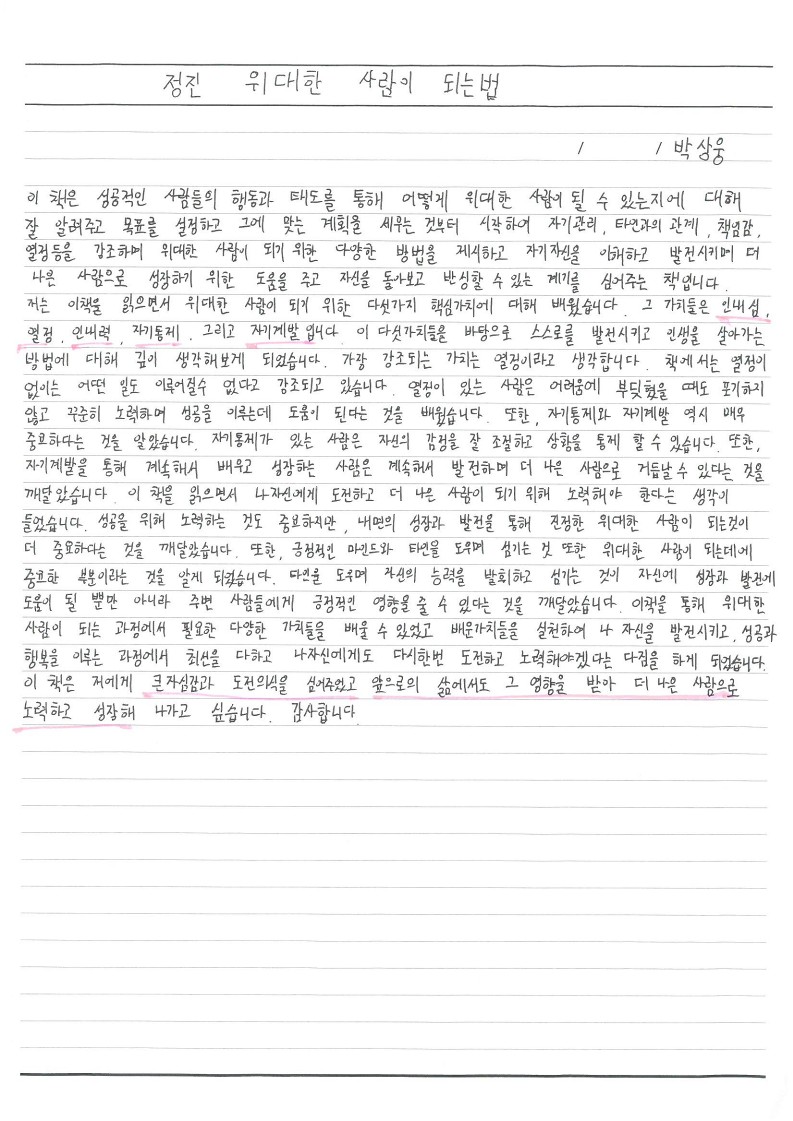 정진 위대한 사람이 되는법
/ / 박상웅
이 책은 성공적인 사람들의 행동과 태도를 통해 어떻게 위대한 사람이 될 수 있는지에 대해
잘 알려주고 목표를 설정하고 그에 맞는 계획을 세우는 것부터 시작하여 자기관리, 타인과의 관계, 책임감,
열정등을 강조하며 위대한 사람이 되기 위한 다양한 방법을 제시하고 자기자신을 이해하고 발전시키며 더
나은 사람으로 성장하기 위한 도움을 주고 자신을 돌아보고 반성할 수 있는 계기를 심어주는 책입니다.
저는 이책을 읽으면서 위대한 사람이 되기 위한 다섯가지 핵심가치에 대해 배웠습니다. 그 가치들은 인내심,
열정, 인내력, 자기통제, 그리고 자기계발 입니다. 이 다섯가치들을 바탕으로 스스로를 발전시키고 인생을 살아가는
방법에 대해 깊이 생각해보게 되었습니다. 가장 강조되는 가치는 열정이라고 생각합니다. 책에서는 열정이
없이는 어떤 일도 이루어질수 없다고 강조되고 있습니다. 열정이 있는 사람은 어려움에 부딪혔을 때도 포기하지
않고 꾸준히 노력하며 성공을 이루는데 도움이 된다는 것을 배웠습니다. 또한, 자기통제와 자기계발 역시 매우
중요하다는 것을 알았습니다. 자기통제가 있는 사람은 자신의 감정을 잘 조절하고 상황을 통제 할 수 있습니다. 또한,
자기계발을 통해 계속해서 배우고 성장하는 사람은 계속해서 발전하며 더 나은 사람으로 거듭날 수 있다는 것을
깨달았습니다. 이 책을 읽으면서 나자신에게 도전하고 더 나은 사람이 되기 위해 노력해야 한다는 생각이
들었습니다. 성공을 위해 노력하는 것도 중요하지만, 내면의 성장과 발전을 통해 진정한 위대한 사람이 되는것이
더 중요하다는 것을 깨달았습니다. 또한, 긍정적인 마인드와 타인을 도우며 섬기는 것 또한 위대한 사람이 되는데에
중요한 부분이라는 것을 알게 되었습니다. 타인을 도우며 자신의 능력을 발휘하고 섬기는 것이 자신에 성장과 발전에
도움이 될 뿐만 아니라 주변 사람들에게 긍정적인 영향을 줄 수 있다는 것을 깨달았습니다. 이책을 통해 위대한
사람이 되는 과정에서 필요한 다양한 가치들을 배울 수 있었고 배운가치들을 실천하여 나 자신을 발전시키고, 성공과
행복을 이루는 과정에서 최선을 다하고 나자신에게도 다시한번 도전하고 노력해야겠다는 다짐을 하게 되었습니다.
이 책은 저에게 큰자심감과 도전의식을 심어주었고 앞으로의 삶에서도 그 영향을 받아 더 나은 사람으로
노력하고 성장해 나가고 싶습니다. 감사합니다.